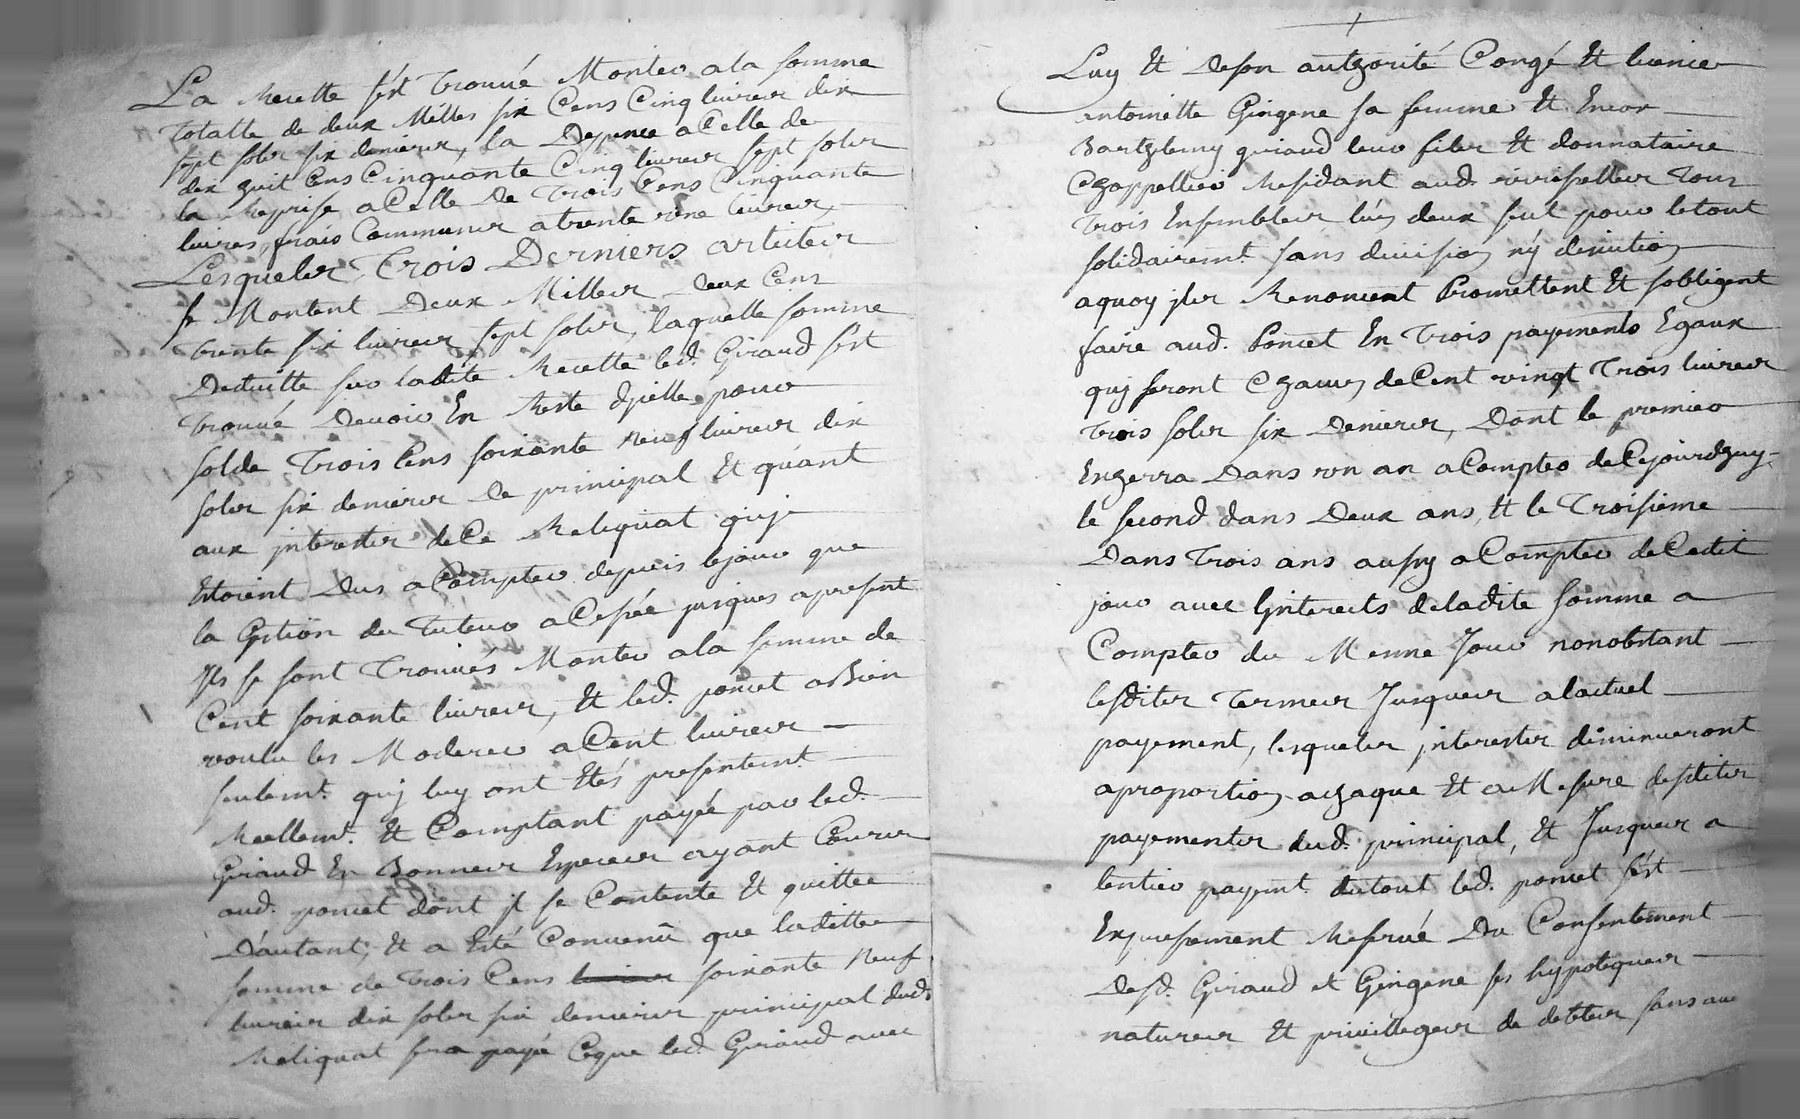 La Recette s'est trouvé Monter a la somme
totalle de deux Milles six Cens Cinq livres dix
sept sols six deniers, la Depence a Celle de
dix huit Cens Cinquante Cinq livres sept sols
la Reprise a Celle de Trois Cens Cinquante
livres, frais Communs a trente une livres,
Lesquels Trois Derniers articles
se Montent Deux Milles Deux Cens
trente six livres sept sols, laquelle somme
Deduitte sur ladite Recette led. Giraud s'est
trouvé Devoir En Reste d'jcelle pour
solde Trois Cens soixante neuf livres dix
sols six deniers de principal Et quant
aux jnterests de Ce Reliquat quj
Etoient Dus a Compter depuis lejour que
la Gestion de Tuteur a Cessée jusques apresent
Jls se sont Trouvés Monter ala somme de
Cent soixante livres, Et led. poncet a Bien
voulu les Moderer a Cent livres
seulemt. quj luy ont Etés presentemt.
Reellemt. Et Comptant payée par led.
Giraud En Bonnes Especes ayant Cours
aud. poncet dont jl se Contente Et quitte
D'autant, Et a Eté Convenû que laditte
somme de Trois Cens soixante Neuf
livres dix sols six deniers principal dud.
Reliquat sera payé Ceque led. Giraud avec
Luy Et Deson authorité Congé Et licence
antoinette Gingene sa femme Et Encor
Barthelemy giraud leur fils Et donnataire
Chappellier Residant aud. Tous
Trois Ensembles lun deux seul pour letout
solidairemt. sans division ny discution
aquoy jls Renoncent Promettent Et sobligent
faire aud. Poncet En Trois payements Egaux
quj seront Chacun de Cent vingt Trois livres
trois sols six Deniers, Dont le premier
Echerra Dans un an a Compter de Cejourdhuy
le second dans Deux ans, Et le Troisieme
Dans Trois ans aussy a Compter de Cedit
jour avec Jnterests deladite somme a
Compter du Meme Jour nonobstant
lesdites Termes Jusques a lactuel
payement, lesquels jnterests diminueront
aproportion achaque Et a Mesure desdits
payements dud. principal, Et Jusques a
lentier payemt. dutout led. poncet s'est
Expressement Reservé Du Consentement
Desd. Giraud et Gingene ses hypoteques
natures Et privilleges de dettes sans